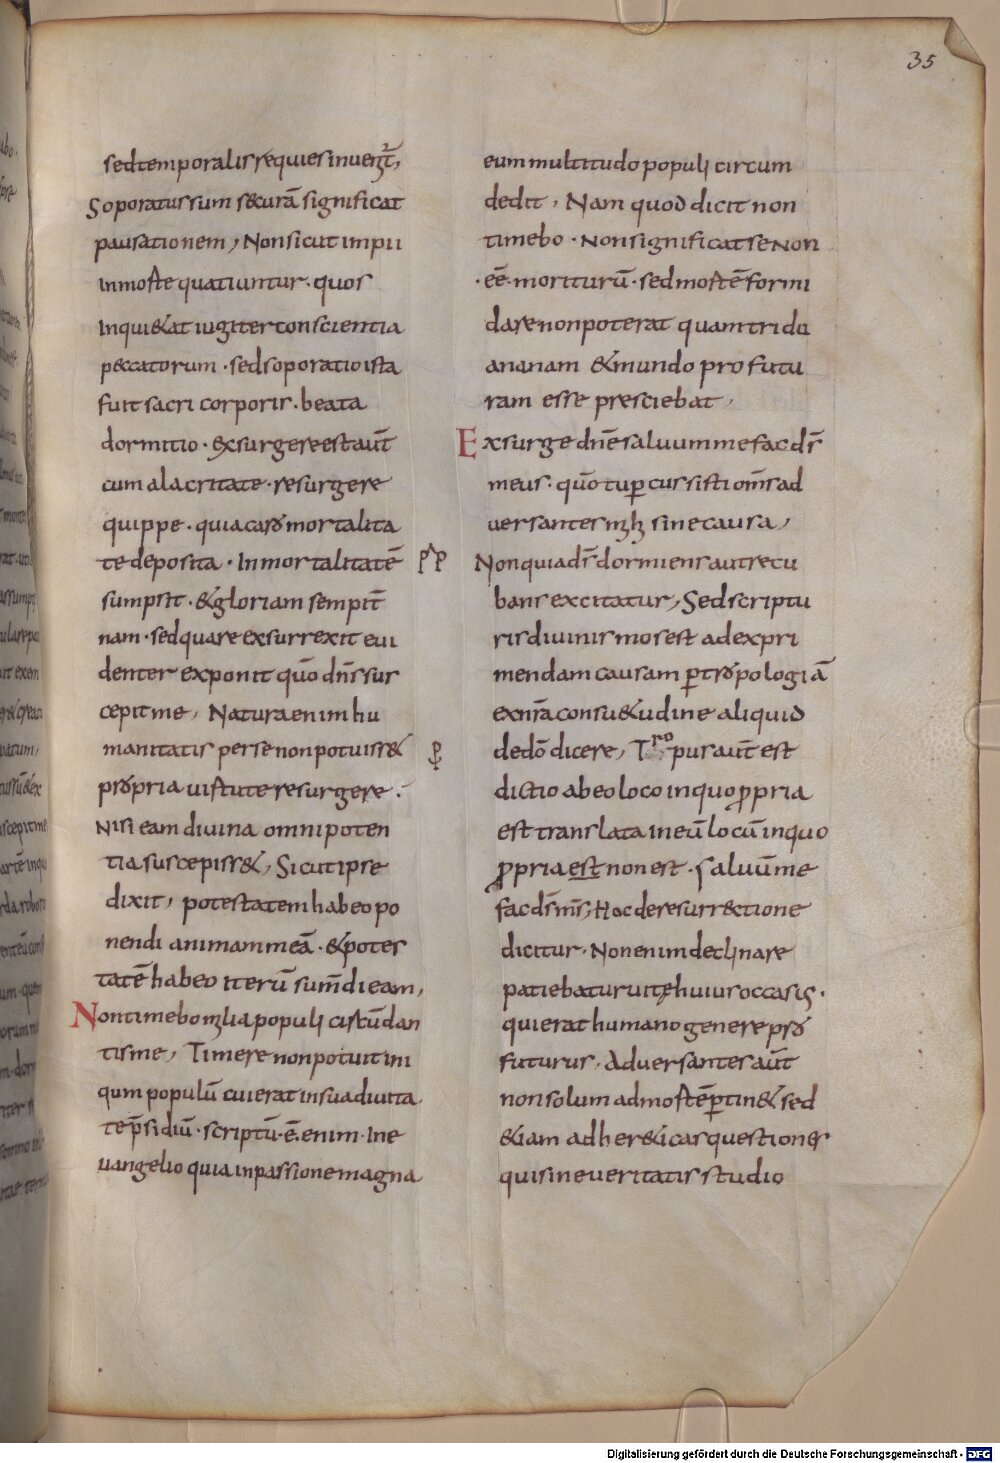 35
sed temporalis requies inuenit᷒,
Soporatus sum secura᷒ significat
pausationem, Non sicut impii
in morte quatiuntur· quos
inqui&at iugiter conscientia
peccatorum· sed soporatio ista
fuit sacri corporis· beata
dormitio· exsurgere est aut̄
cum alacritate· resurgere
quippe· quia carō mortalita
te deposita· Inmortalitatē
sumpsit· & gloriam sempit̄
nam· sed quare exsurrexit eui
denter exponit quō dn̄s sus
cepit me, Natura enim hu
manitatis per se non potuiss&
propria uirtute resurgere·
Nisi eam diuina omnipoten
tia suscepiss&, Sicut ipse
dixit, potestatem habeo po
nendi animam meā· & potes
tatē habeo iterū sum̄di eam,
Non timebo mlia populi circūdan
tis me, Timere non potuit ini
qum populū cui erat in sua diuita
te p̄sidiū· scriptū· ē· enim· In e
uangelio quia in passione magna
eum multitudo populi circum
dedit, Nam quod dicit non
timebo· Non significat se non
·eē· moriturū· sed mortē formi
dare non poterat quam tridu
anam & mundo profutu
ram esse presciebat,
Exsurge dn̄e saluum me fac ds̄
meus· quō tu ꝑcussisti om̄s ad
uersantes mh sine causa,
Non quia ds̄ dormiens aut recu
bans excitatur, Sed scriptu
ris diuinis mos est ad expri
mendam causam ꝑ tropologiā
ex nr̄a consu&udine aliquid
de dō dicere, Tropus aut̄ est
dictio ab eo loco in quo ꝓpria
est translata in eū locū in quo
ꝓpria est non est· saluū me
fac ds̄ ms̄; Hoc de resurr&ctione
dicitur· Non enim declinare
patiebatur uitę huius occasis·
qui erat humano genere pro
futurus· Aduersantes aut̄
non solum ad mortē ꝑtin& sed
&iam ad her&icas questiones
qui sine ueritatis studio
Digitalisierung gefördert durch die Deutsche Forschungsgemeinschaft - DFG